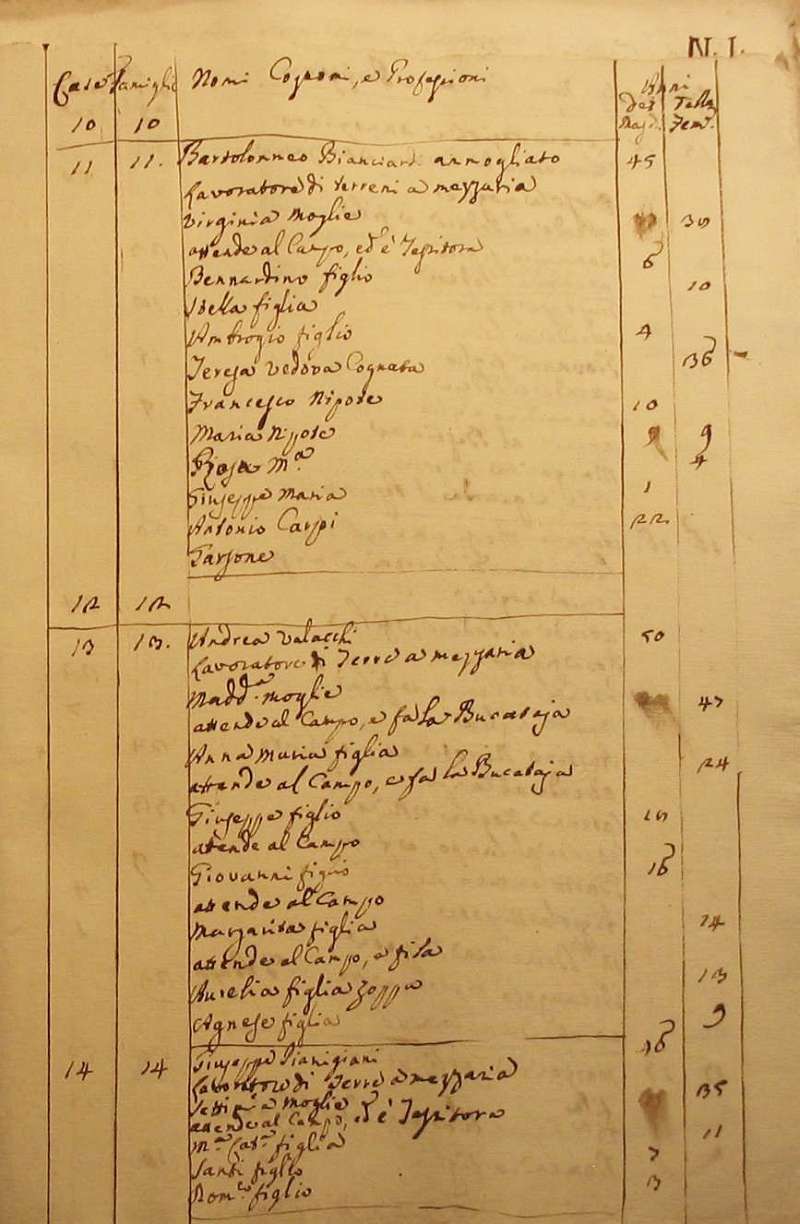 N. I.
Case Famiglie Nomi Cognomi, e Professioni Anni
dei Mas. Delle Fem.
10 10
11 11. Bartolommeo Bianciardi ammogliato 45
Lavoratore di terreni a mezzaria
Virginia Moglie 39
attende al Campo, ed è Tessitora
Bernardino figlio 6
Stella figlia 10
Ambrogio figlio 4
Teresa Vedova Cognata 36
Francesco Nipote 10
Maria Nipote 9
Rosa M.a 4
Giuseppe Maria 1
Antonio Carpi 22
Garzone
12 12
13 13. Andrea Valacchi 50
Lavoratore di Terre a mezzaria
Madd.a moglie 47
attende al Campo, e fa la Bucataja
Anna Maria figlia 24
attende al Campo, e fa la Bucataja
Giuseppe figlio 19
attende al Campo
Giovanni figlio 16
attende al Campo
Margarita figlia 14
attende al Campo, e fila
Aurelia figlia zoppa 13
Agnese figlia 9
14 14 Giuseppe Pianigiani 36
Lavoratore di Terre a mezzaria
moglie 35
attende al Campo, ed è Tessitora
M.a Cat.a figlia 11
Santi figlio 7
Rom.o figlio 3